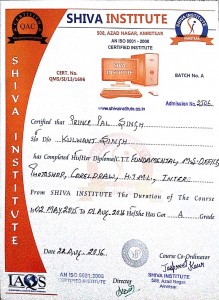 SHIVA INSTITUTE
508, AZAD NAGAR, AMRITSAR
AN ISO 9001 - 2008
CERTIFIED INSTITUTE
QAL
CERT. No.
QMS/SI/13/1696
BATCH No. A
www.shivainstitute.co.in
Admission No. 2506
SHIVA INSTITUTE
Certified that PRINCE PAL SINGH
S/o D/o KULWANT SINGH
has Completed His/Her Diploma I.T. FUNDAMENTAL, MS-OFFICE
PHOTOSHOP, CORELDRAW, H.T.M.L, INTER.
From SHIVA INSTITUTE The Duration of the Course
is 02 MAY 2015 to 01 AUG. 2016 He/She Has Got A Grade
Date 22 Aug. 2016.
Course Co-Ordinator
AN ISO 9001:2008
CERTIFIED INSTITUTE
Director
SHIVA INSTITUTE
508, Azad Nagar,
Amritsar
IAQS